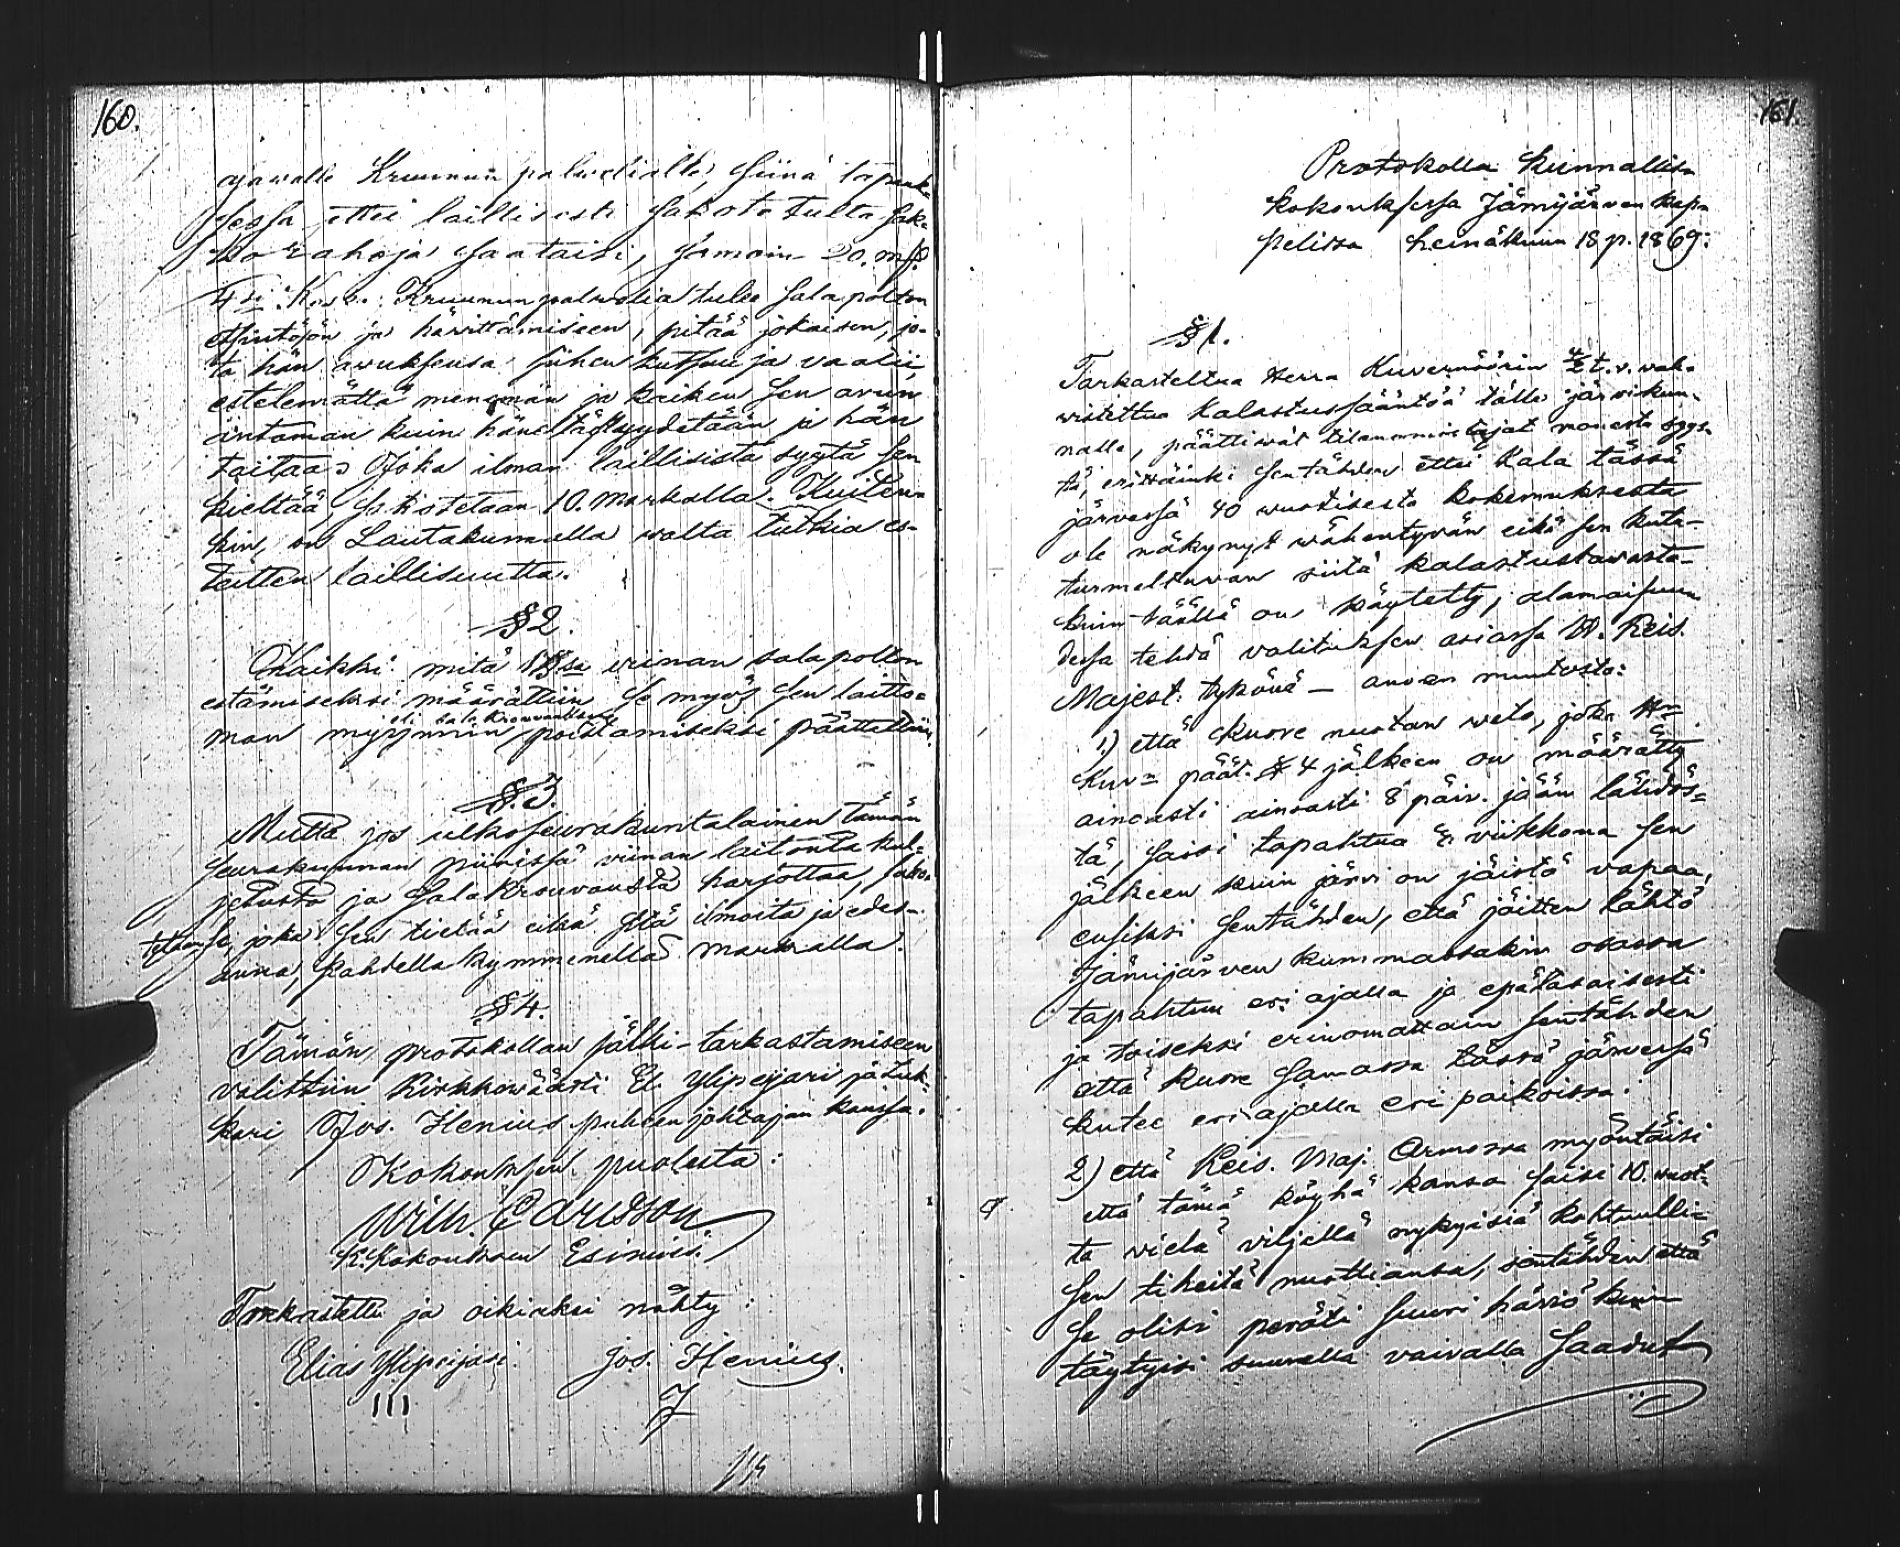 160.
ajawalle Kruunun palwelialle, siinä tapauk-
sessa ettei laillisesti sakotetulta sak-
ko rahoja saataisi, samoin 20. mk.
4:si Koska Kruununpalwelia tulee salapolton
etsintöön ja hävittämiseen, pitää jokaisen, jo-
ta hän awuksensa siihen kutsuu ja vaatii,
estelemättä menemän ja kaiken sen avun
antaman kuin häneltä pyydetään ja hän
taitaa; Joka ilman laillisista syytä sen
kieltää, sakotetaan 10. markalla. Kuiten-
kin, on Lautakunnalla walta tutkia es-
teitten laillisuutta.
§ 2.
Kaikki mitä §§:sa viinan salapolton
estämiseksi määrättiin se myös sen laitto-
man myyjmin eli salakrouvauksen poistamiseksi päätettiin.
§. 3.
Mutta jos ulkoseurakuntalainen tämän
seurakunnan piirissä viinan laitonta kul-
jetusta ja salakrouvausta harjottaa, sako-
tetaan se, joka sen tietää eikä sitä ilmoita ja edes-
anna, kahdella kymmenellä markalla.
§ 4.
Tämän protokollan jälki-tarkastamiseen
valittiin Kirkkowäärti El. Ylipeijari ja Luk-
kari Jos. Henius puheenjohtajan kanssa.
Kokouksen puolesta:
Wilh. Carlsson
K. Kokouksen Esimies.
Tarkastettu ja oikiaksi nähty:
Elias Ylipeijari. Jos. Henius.
161.
Protokolla kunnallisa
kokouksessa Jämijärven kap-
pelissa heinäkuun 18 p. 1869:
§ 1.
Tarkasteltua Herra Kuvernöörin t. v. vah-
wistettua Kalastussääntöä tälle järvikun-
nalle, päättiwät tilanomistajat monesta syys-
tä, erittäinki sentähden ettei Kala tässä
järvessä 40 wuotisesta kokemuksesta
ole näkynyt wähentyvän eikä sen kutu-
turmeltuvan siitä kalastustavasta
kuin täällä on käytetty, alamaisuu-
dessa tehdä valituksen asiassa H. Keis.
Majest: tykönä – anoen muutosta:
1) että Kuore nuotan weto, joka Hrn
Kuv:n päät. § 4 jälkeen on määrätty
ainoasti ainoasti 8 päiv. jään lähdös-
tä, saisi tapahtua viikkona sen
jälkeen kuin järvi on jäistä vapaa,
ensiksi sentähden, että jäitten lähtö
Jämijärven kummassakin osassa
tapahtuu eri ajalla ja epätasaisesti
ja toiseksi erinomattain sentähden
että kuore samassa tässä järvessä
kutee eri ajalla eri paikoissa.
2) että Keis. Maj. Armossa myöntäisi
että tämä köyhä kansa saisi 10. vuot-
ta vielä viljellä nykyisiä kohtuulli-
sen tiheitä nuottiansa, sentähden että
se olisi peräti suuri häviö kuin
täytyisi suurella vaivalla saadut